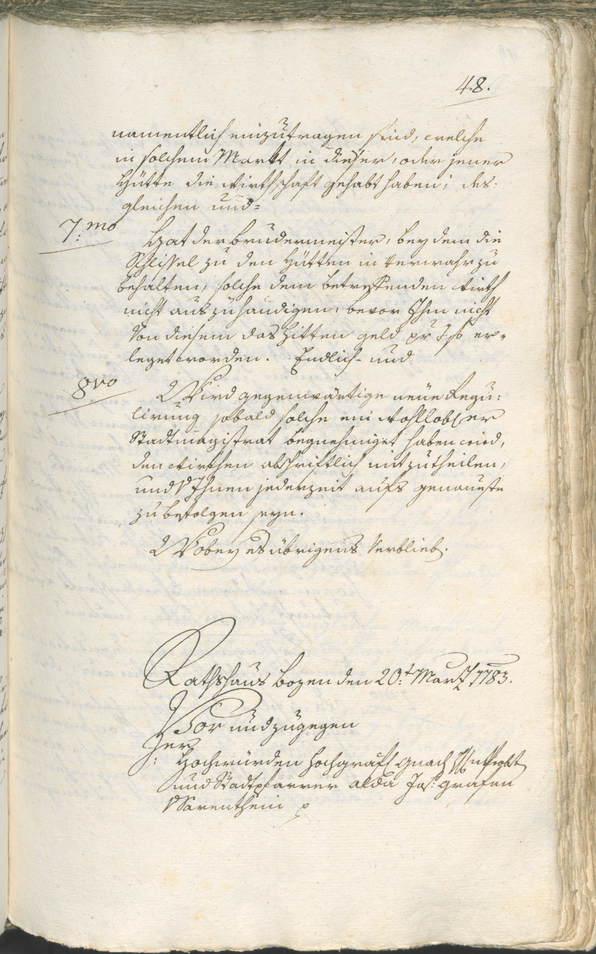 48.
namentlich einzutragen sind, welche
in solchem Markt in dieser, oder jener
Hütte die Wirthschaft gehabt haben; des¬
gleichen und=
7.mo Hat der Brudermeister, bey dem die
Schlissel zu den Hütten in Verwahr zu
behalten, solche dem betreffenden Wirth
nicht auszuhändigen, bevor Ihm nicht
von diesem das Hitten geld pr 3 f er¬
leget worden. Endlich- und
8vo Wird gegenwärtige neue Regu¬
lirung sobald solche ein Wohllobl. er
Stadtmagistrat begnehmiget haben wird,
den Wirthen abschriftlich mitzutheilen,
und von Ihnen jederzeit aufs genaueste
zu befolgen seyn.
Wobey es übrigens Verblieb.
Rathshaus Bozen den 20.t Martz 1783.
Vor und zugegen
Herr
Hochwürden Hochgräfl. Gnad
und Stadtpfarrer alda Jos. Grafen
v Sarenthein p